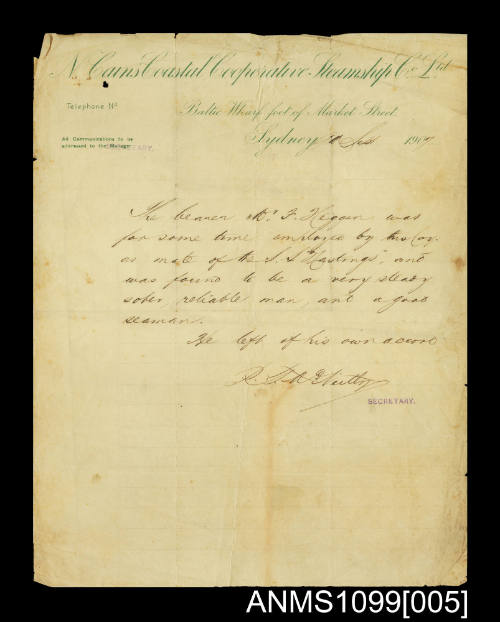 N. Cain's Coastal Cooperative Steamship Co. Ltd
Telephone No
Baltic Wharf foot of Market Street.
All Communications to be
addressed to the
SECRETARY.
Sydney 190
The bearer Mr. F. was
for some time employed by this Coy.
as mate of the S.S "Hastings", and
was found to be a very steady
sober, reliable man, and a good
seaman.
He left of his own accord
SECRETARY.
ANMS1099[005]